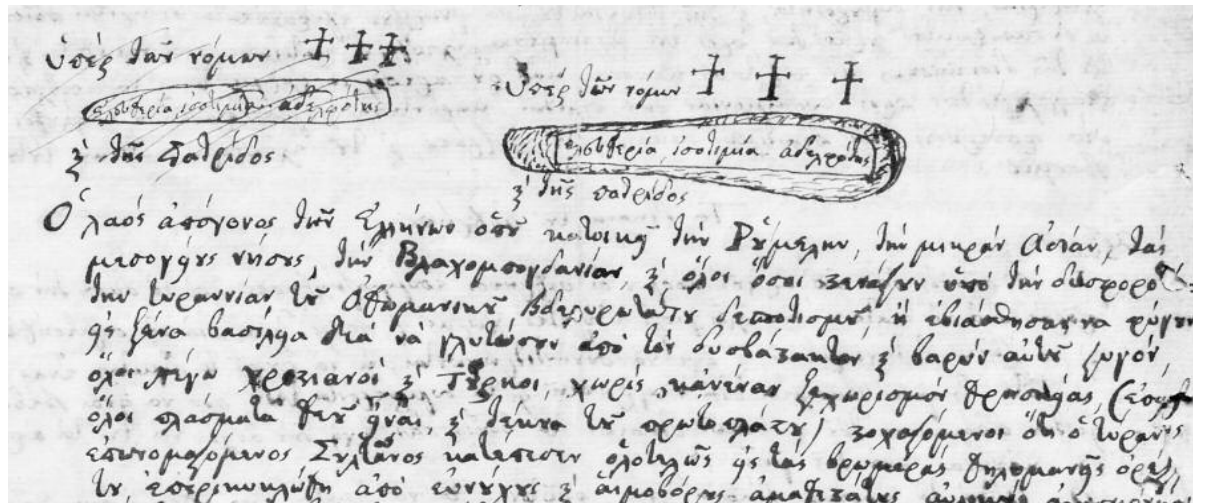 Ὑπὲρ τῶν νόμων
ἐλευθερία, ἰσοτιμία ἀδελφότης
ϗ τῆς Πατρίδος
Ὑπὲρ τῶν νόμων
ἐλευθερία, ἰσοτιμία ἀδελφότης
ϗ τῆς πατρίδος
Ὁ λαός ἀπόγονος τῶν Ἑλλήνων ὁπȣ͂ κατοικεῖ τὴν Ῥȣ́μελην, τὴν μικρὰν Ἀσίαν, τὰς
μεσογείȣς νήσȣς, τὴν Βλαχομπογδανίαν, ϗ ὅλοι ὅσοι στενάζȣν ὑπὸ τὴν δυσφορο
την τυραννίαν τȣ͂ Ὀθωμανικȣ͂ βδελυρωτάτȣ δεσποτισμȣ͂ ἢ ἐβιάσθησαν νὰ φύγȣν
εἰς ξένα βασίλεια διὰ νὰ γλυτώσȣν ἀπὸ τὸν δυσβάστακτον ϗ βαρὺν αὐτȣ͂ ζυγόν,
ὅλοι λέγω χριστιανοὶ ϗ Τȣ͂ρκοι, χωρὶς κανέναν ξεχωρισμὸν θρησκείας (
ὅλοι πλάσματα θεȣ͂ εἶναι, ϗ τέκνα τȣ͂ πρωτοπλάστȣ) στοχαζόμενοι ὅτι ὁ τύραννος
ἐπονομαζόμενος Σȣλτάνος κατέπεσεν ὁλοτελῶς εἰς τὰς βρωμερὰς θηλυμανεῖς ὀρέξεις
τȣ ἐπερικυκλώθη ἀπὸ εὐνȣ́χȣς ϗ αἱμοβόρȣς